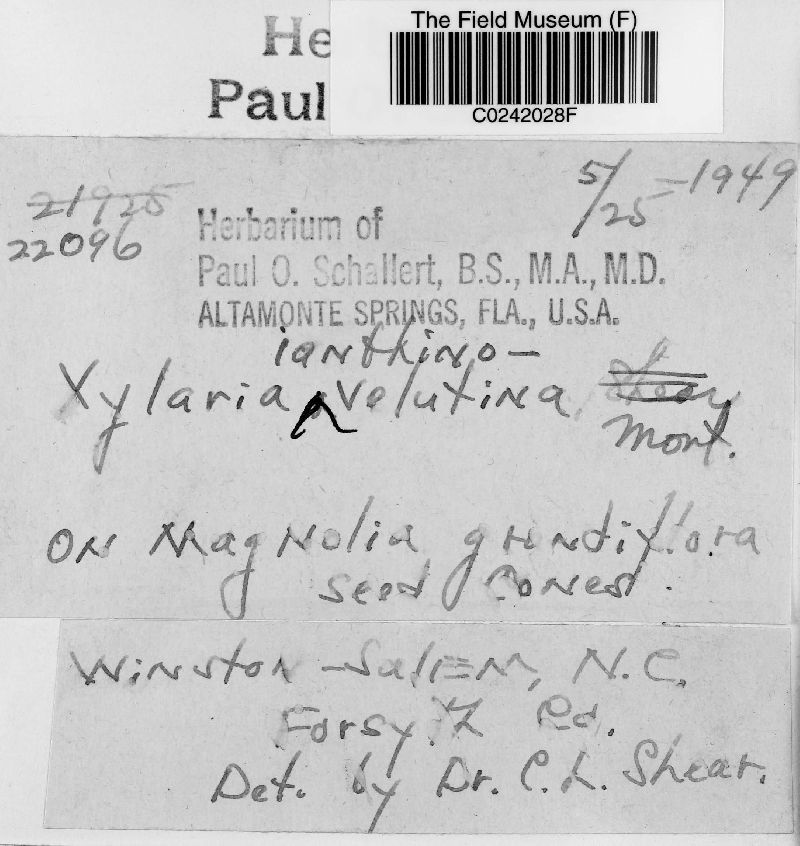 The Field Museum (F)
C0242028F
He
Paul
21925
22096
5/25 - 1949
Herbarium of
Paul O. Schallert, B.S., M.A., M.D.
ALTAMONTE SPRINGS, FLA., U.S.A.
ianthino-
Xylaria velutina Shear
Mont.
ON Magnolia grandiflora
seed Cones.
Winston-Salem, N.C.
Forsy. Co.
Det. by Dr. C. L. Shear.